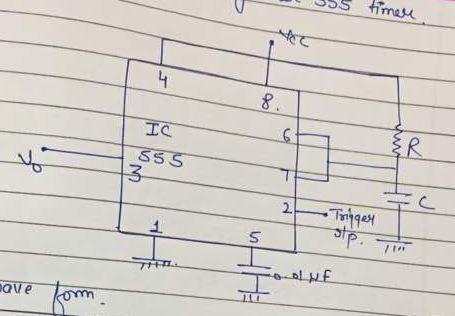 555 timer.
Vcc
4
8.
IC
6
R
555
Vo
3
7
C
2
Trigger
i/p.
1
5
0.01 μF
form.